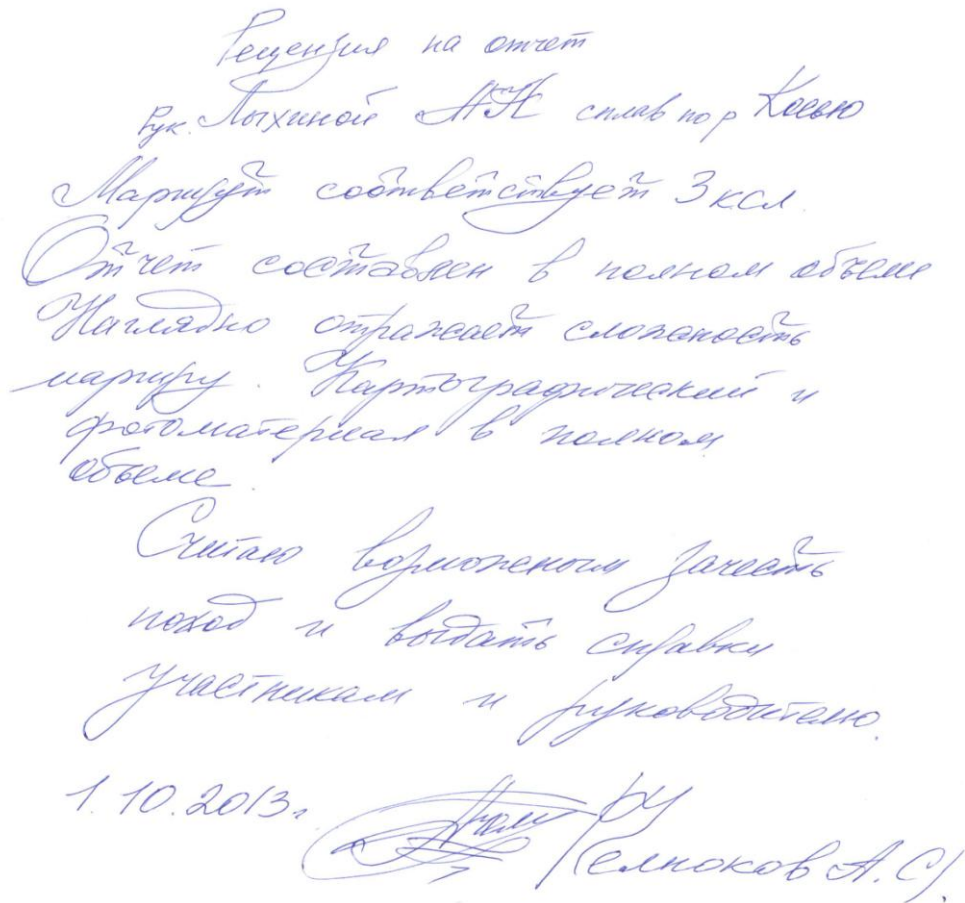 Рецензия на отчет
Рук. Лыхиной АН сплав по р Косью
Маршрут соответствует 3 ксл.
Отчет составлен в полном объеме
Наглядно отражает сложность
маршру. Картографический и
фотоматериал в полном
объеме.
Считаю возможным зачесть
поход и выдать справки
участникам и руководителю.
1.10.2013г.
А. С.